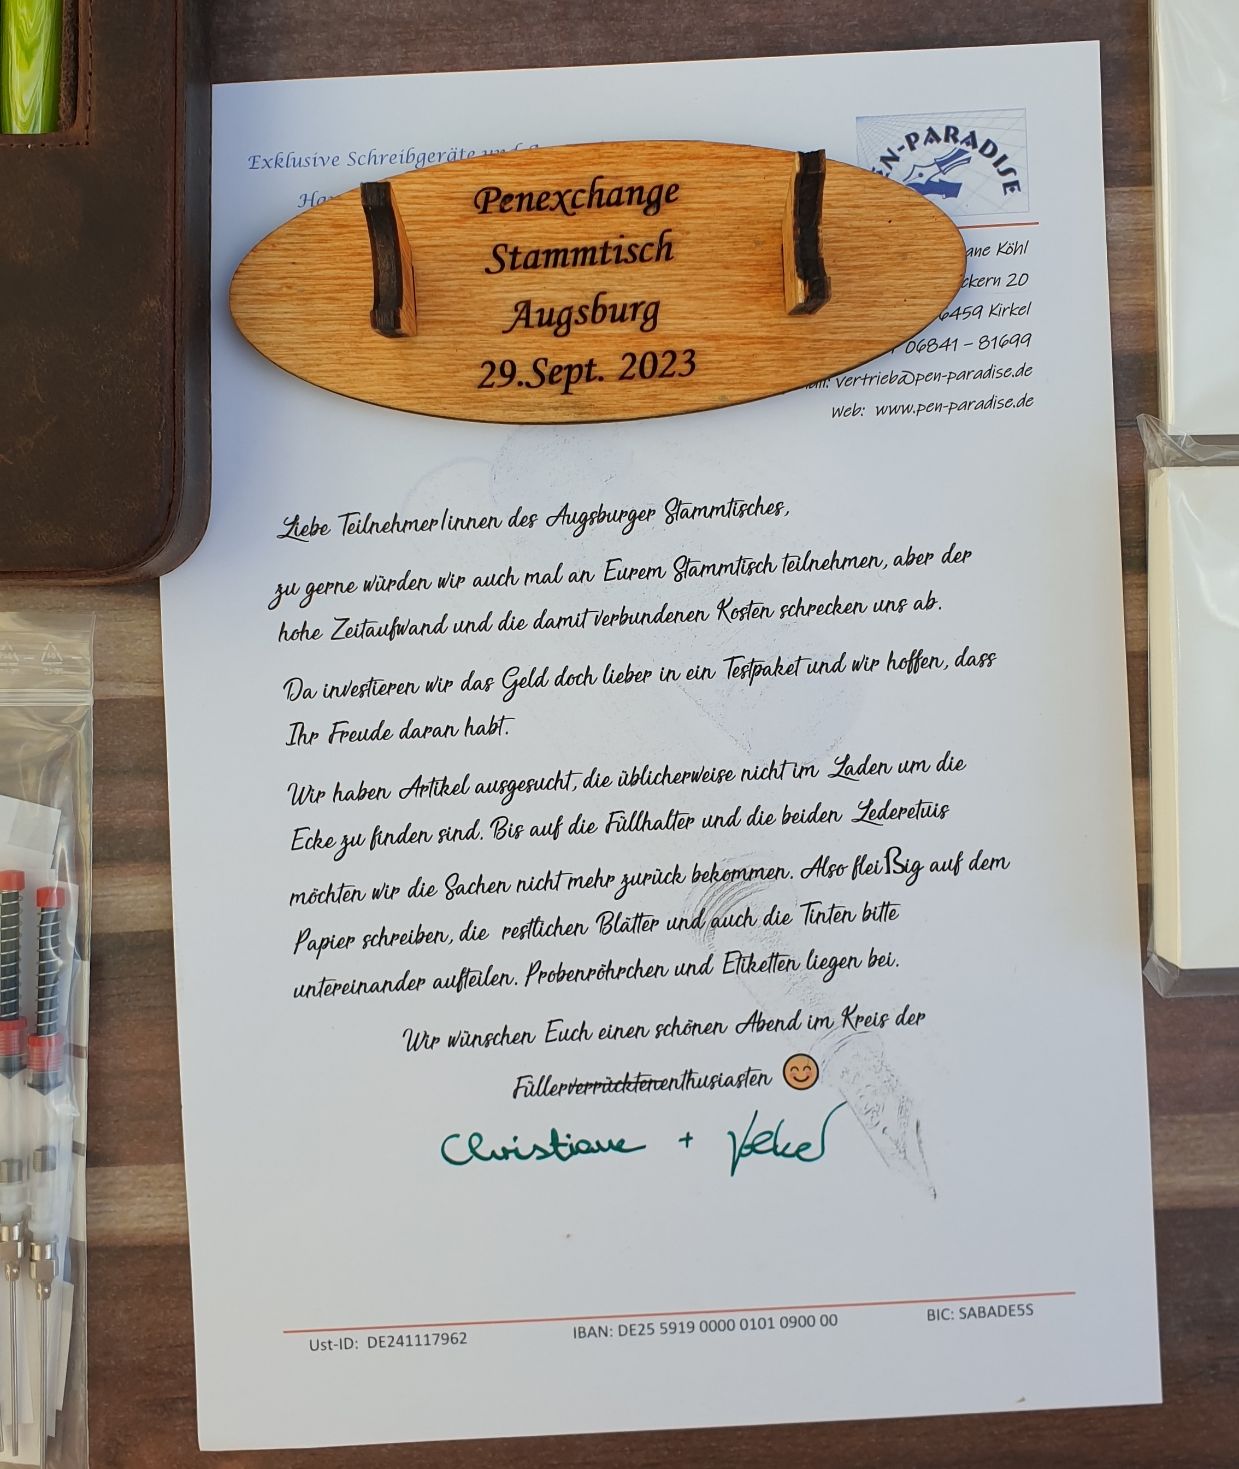 Exklusive Schreibgeräte und
PEN-PARADISE
Penexchange
Stammtisch
Augsburg
29.Sept. 2023
Köhl
20
Kirkel
06841 – 81699
vertrieb@pen-paradise.de
Web: www.pen-paradise.de
Liebe Teilnehmer/innen des Augsburger Stammtisches,
zu gerne würden wir auch mal an Eurem Stammtisch teilnehmen, aber der
hohe Zeitaufwand und die damit verbundenen Kosten schrecken uns ab.
Da investieren wir das Geld doch lieber in ein Testpaket und wir hoffen, dass
Ihr Freude daran habt.
Wir haben Artikel ausgesucht, die üblicherweise nicht im Laden um die
Ecke zu finden sind. Bis auf die Füllhalter und die beiden Lederetuis
möchten wir die Sachen nicht mehr zurück bekommen. Also fleißig auf dem
Papier schreiben, die restlichen Blätter und auch die Tinten bitte
untereinander aufteilen. Probenröhrchen und Etiketten liegen bei.
Wir wünschen Euch einen schönen Abend im Kreis der
Füllerverrücktenenthusiasten
Christiane + Volker
Ust-ID: DE241117962 IBAN: DE25 5919 0000 0101 0900 00 BIC: SABADE5S